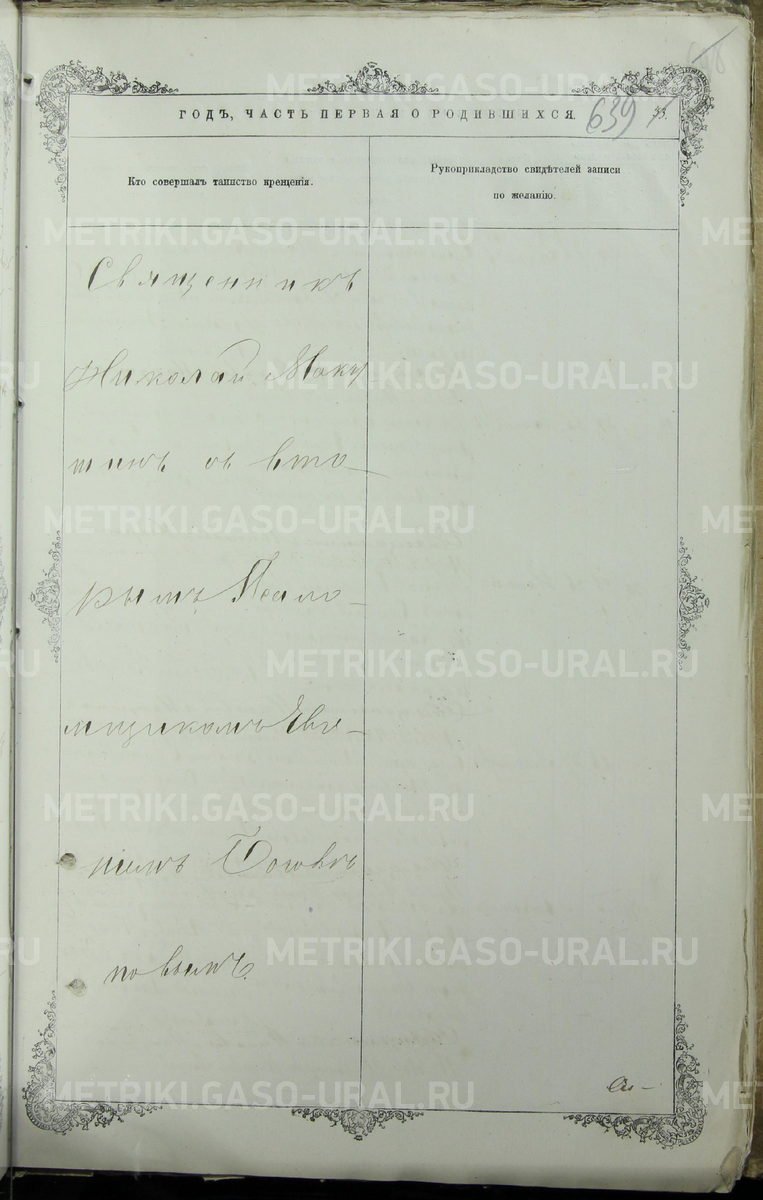 ГОДЪ, ЧАСТЬ ПЕРВАЯ О РОДИВШИХСЯ.
639
Кто совершалъ таинство крещенія.
Рукоприкладство свидѣтелей записи
по желанію.
Священникъ
Николай Маку
шинъ съ вто-
рымъ Псало-
мщикомъ Евге-
ніемъ
новымъ.
METRIKI.GASO-URAL.RU